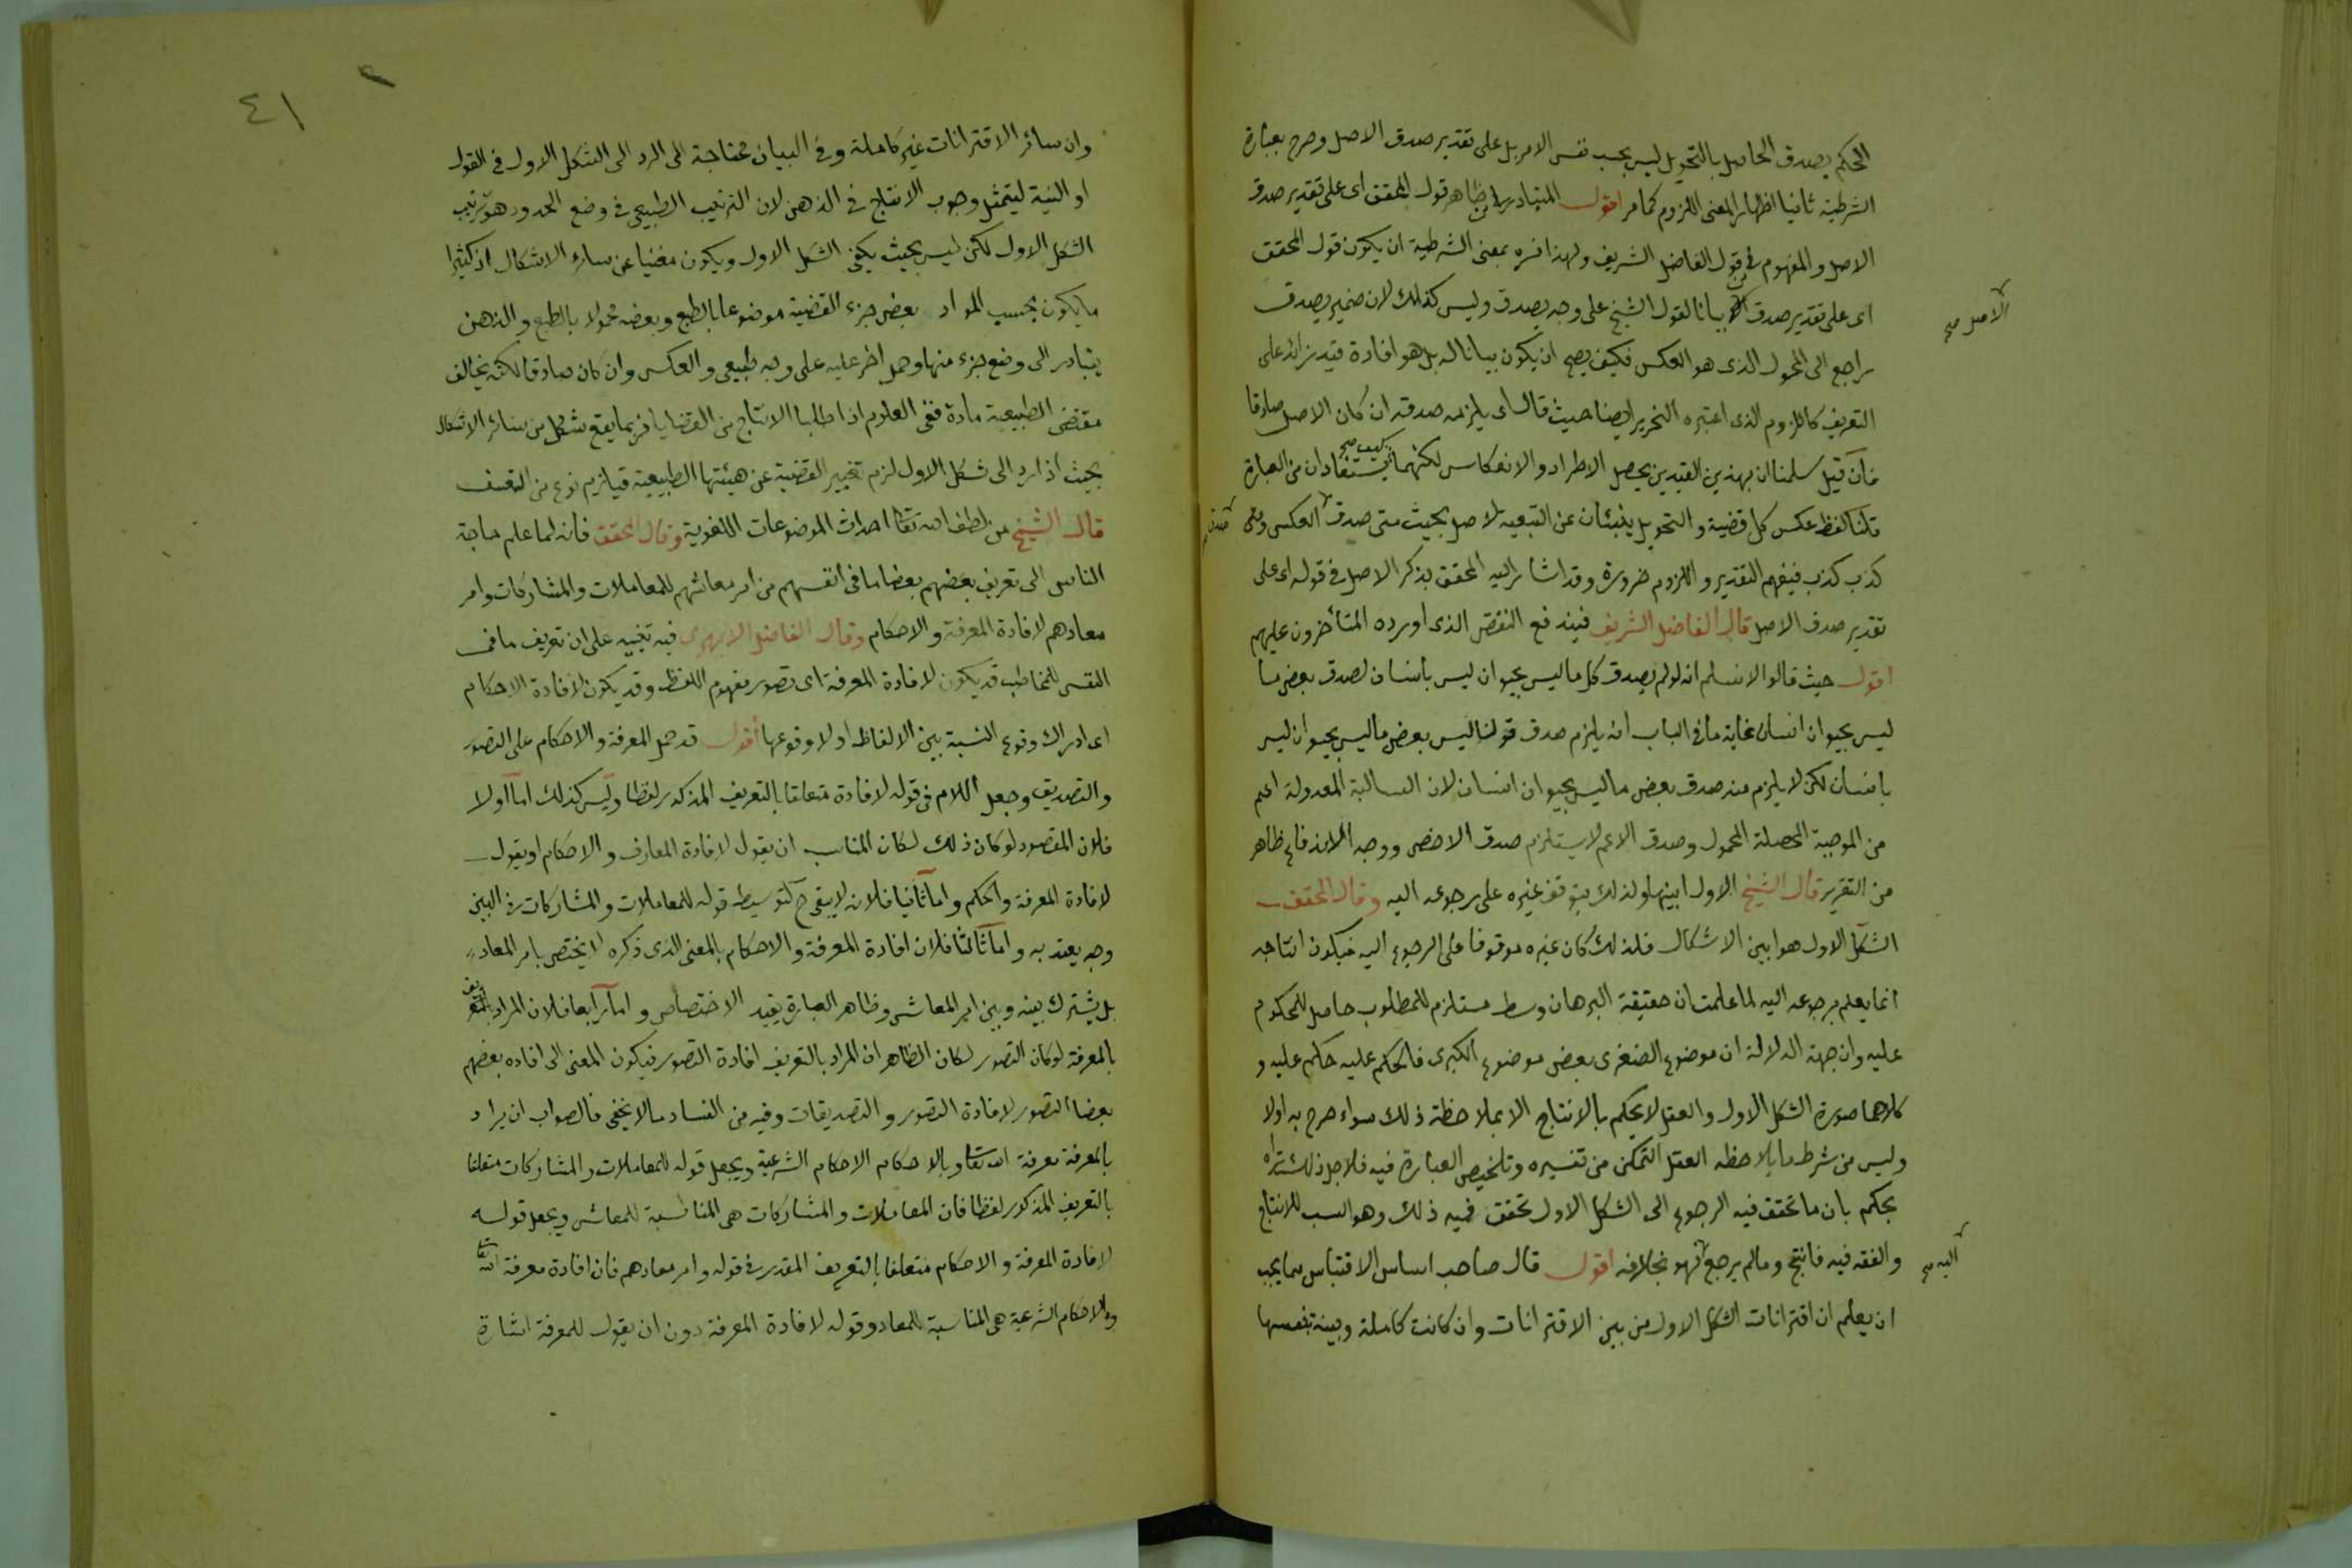 الحكم بصدق الحاصل بالتحويل ليس بحسب نفس الامر بل على تقدير صدق الاصل وصرح بعبارة
الشرطية ثانيا اظهارا لمعنى اللزوم كما مر اقول المتبادر من ظاهر قول المحقق اى على تقدير صدق
الاصل والمفهوم من قول الفاضل الشريف ولهذا فسره بمعنى الشرطية ان يكون قول المحقق
اى على تقدير صدق بيانا لقول الشيخ على وجه يصدق وليس كذلك لان ضمير يصدق
الاصل صح
راجع الى المحول الذى هو العكس فكيف يصح ان يكون بيانا له بل هو افادة قيد زائد على
التعريف كاللزوم الذى اعتبره النحرير ايضا حيث قال اى يلزمه صدقه ان كان الاصل صادقا
فان قيل سلمنا ان بهذين القيدين يحصل الاطراد والانعكاس لكنهما كيف يستفادان من العبارة
قلنا لفظ عكس كل قضية والتحويل ينبئان عن التبعية للاصل بحيث متى صدق العكس ومتى
كذب كذب فيفهم التقدير واللزوم ضرورة وقد اشار اليه المحقق بذكر الاصل فى قوله اى على
تقدير صدق الاصل قال الفاضل الشريف فيندفع النقض الذى اورده المتأخرون عليهم
اقول حيث قالوا لا نسلم انه لو لم يصدق كل ما ليس بحيوان ليس بانسان لصدق بعض ما
ليس بحيوان انسان غاية ما فى الباب انه يلزم صدق قولنا ليس بعض ما ليس بحيوان ليس
بانسان لكن لا يلزم منه صدق بعض ما ليس بحيوان انسان لان السالبة المعدولة اعم
من الموجبة المحصلة المحمول وصدق الاعم لا يستلزم صدق الاخص ووجه الاندفاع ظاهر
من التقرير قال الشيخ الاول ابينها ولذلك يتوقف غيره على رجوعه اليه وقال المحقق
الشكل الاول هو ابين الاشكال فلذلك كان غيره موقوفا على الرجوع اليه فيكون انتاجه
انما يعلم برجوعه اليه لما علمت ان حقيقة البرهان وسط مستلزم للمطلوب حاصل للمحكوم
عليه وان جهة الدلالة ان موضوع الصغرى بعض موضوع الكبرى فالحكم عليه حكم عليه و
كلاهما صورة الشكل الاول والعقل لا يحكم بالانتاج الا بملاحظة ذلك سواء صرح به اولا
وليس من شرط ما يلاحظه العقل التمكن من تفسيره وتلخيص العبارة فيه فلاجل ذلك تراه
يحكم بان ما تحقق فيه الرجوع الى الشكل الاول تحقق فيه ذلك وهو السبب للانتاج
والفقه فيه فانتج وما لم يرجع فهو بخلافه اقول قال صاحب اساس الاقتباس مما يجب
اليه صح
ان يعلم ان اقترانات الشكل الاول من بين الاقترانات وان كانت كاملة وبينة بنفسها
٤١
وان سائر الاقترانات غير كاملة وفى البيان محتاجة الى الرد الى الشكل الاول فى القول
او النية ليتمثل وجوب الانتاج فى الذهن لان الترتيب الطبيعى فى وضع الحدود هو ترتيب
الشكل الاول لكن ليس بحيث يكفى الشكل الاول ويكون مغنيا عن سائر الاشكال اذ كثيرا
ما يكون بحسب المواد بعض جزء القضية موضوعا بالطبع وبعضه محمولا بالطبع والذهن
يتبادر الى وضع جزء منها وحمل اخر عليه على وجه طبيعى والعكس وان كان صادقا لكنه يخالف
مقتضى الطبيعية مادة ففى العلوم اذا طلبا الانتاج من القضايا فربما يقع شكل من سائر الاشكال
بحيث اذا رد الى شكل الاول لزم تغيير القضية عن هيئتها الطبيعية فيلزم نوع من التعسف
قال الشيخ من لطف الله تعالى احداث الموضوعات اللغوية وقال المحقق فانه لما علم حاجة
الناس الى تعريف بعضهم بعضا ما فى انفسهم من امر معاشهم للمعاملات والمشاركات وامر
معادهم لافادة المعرفة والاحكام وقال الفاضل الابهرى فيه تنبيه على ان تعريف ما فى
النفس للمخاطب قد يكون لافادة المعرفة اى تصور مفهوم اللفظ وقد يكون لافادة الاحكام
اى ادراك وقوع النسبة بين الالفاظ او لا وقوعها اقول قد حمل المعرفة والاحكام على التصور
والتصديق وجعل اللام فى قوله لافادة متعلقا بالتعريف المذكور لفظا وليس كذلك اما اولا
فلان المقصود لو كان ذلك لكان المناسب ان يقول لافادة المعارف والاحكام او يقول
لافادة المعرفة والحكم واما ثانيا فلانه لا يبقى ح لتوسيط قوله للمعاملات والمشاركات فى البين
وجه يعتد به واما ثالثا فلان افادة المعرفة والاحكام بالمعنى الذى ذكره لا يختص بامر المعاد
بل يشترك بينه وبين امر المعاش وظاهر العبارة يفيد الاختصاص واما رابعا فلان المراد
بالمعرفة لو كان التصور لكان الظاهر ان المراد بالتعريف افادة التصور فيكون المعنى الى افاده بعضهم
بعضا التصور لافادة التصور والتصديقات وفيه من الفساد ما لا يخفى فالصواب ان يراد
بالمعرفة معرفة الله تعالى وبالاحكام الاحكام الشرعية ويجعل قوله للمعاملات والمشاركات متعلقا
بالتعريف المذكور لفظا فان المعاملات والمشاركات هى المناسبة للمعاش ويجعل قوله
لافادة المعرفة والاحكام متعلقا بالتعريف المقدر فى قوله وامر معادهم فان افادة معرفة الله
والاحكام الشرعية هى المناسبة للمعاد وقوله لافادة المعرفة دون ان يقول للمعرفة اشارة